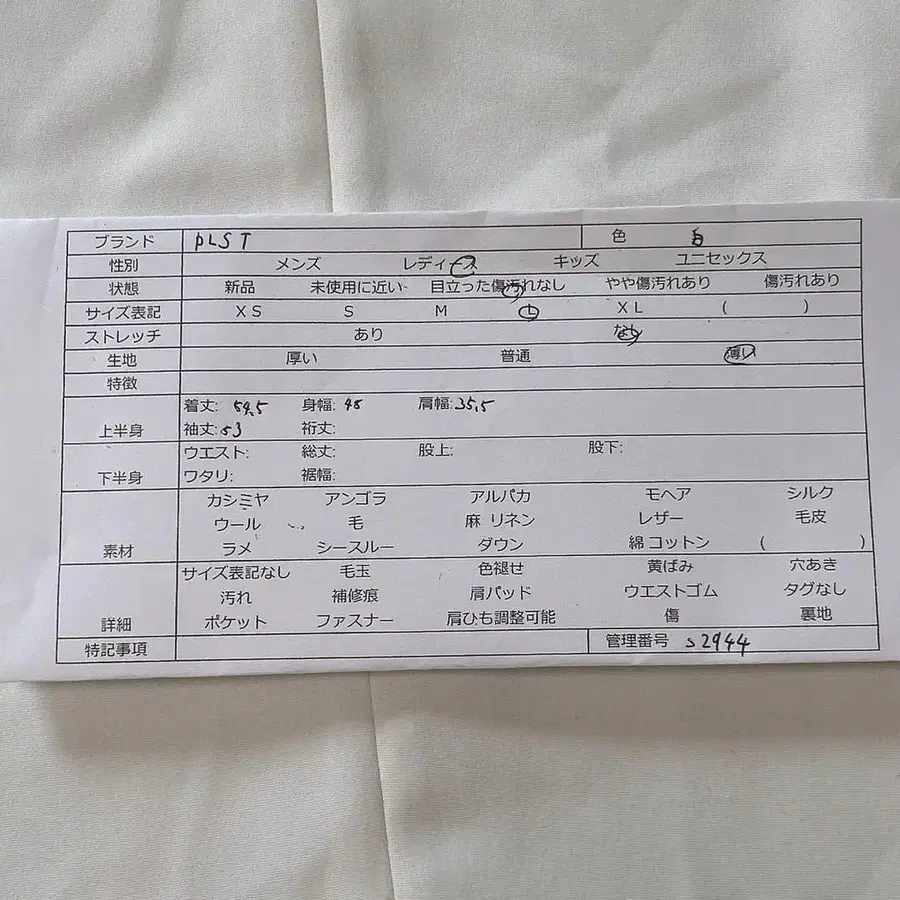 ブランド PLST 色 白
性別 メンズ レディース キッズ ユニセックス
状態 新品 未使用に近い 目立った傷汚れなし やや傷汚れあり 傷汚れあり
サイズ表記 XS S M L XL ( )
ストレッチ あり なし
生地 厚い 普通 薄い
特徴
上半身 着丈: 59.5 身幅: 48 肩幅: 35.5
袖丈: 53 裄丈:
下半身 ウエスト: 総丈: 股上: 股下:
ワタリ: 裾幅:
カシミヤ アンゴラ アルパカ モヘア シルク
ウール 毛 麻 リネン レザー 毛皮
素材 ラメ シースルー ダウン 綿 コットン ( )
サイズ表記なし 毛玉 色褪せ 黄ばみ 穴あき
汚れ 補修痕 肩パッド ウエストゴム タグなし
詳細 ポケット ファスナー 肩ひも調整可能 傷 裏地
特記事項 管理番号 s2944